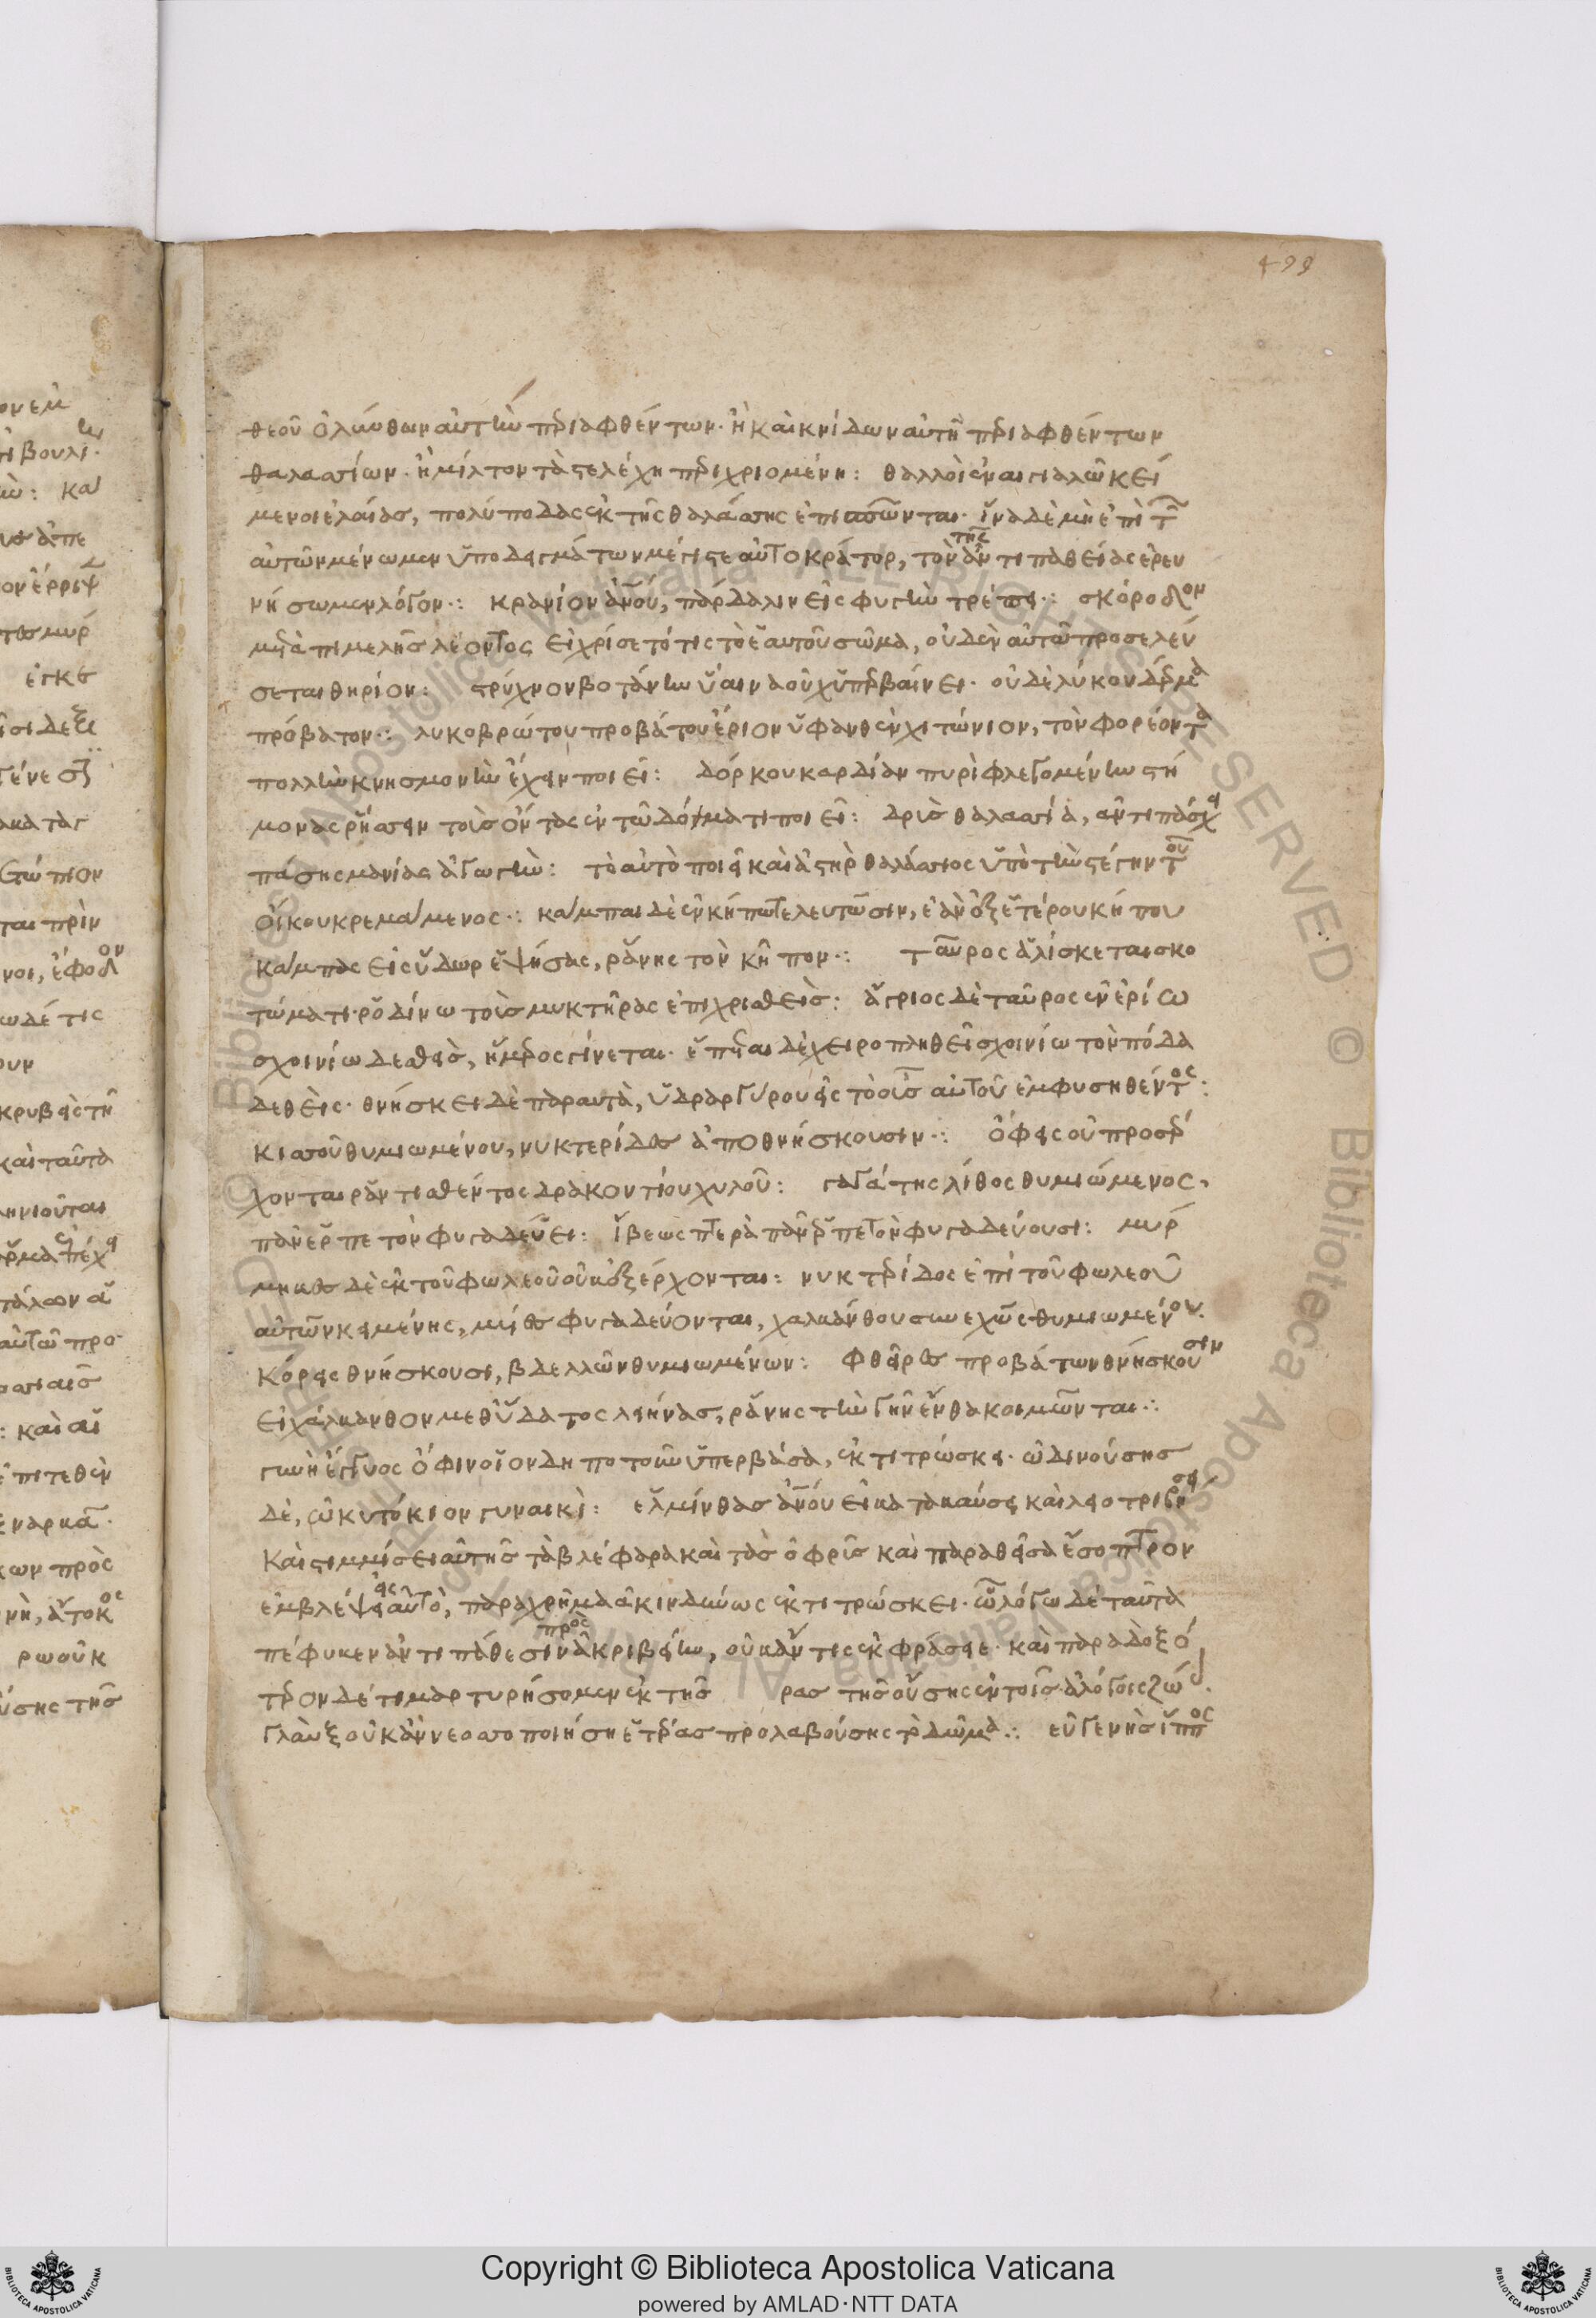 499
θεοῦ ὀλύνθων αὐτῇ περιαφθέντων. ἢ καὶ κνίδων αὐτῇ περιαφθέντων
θαλασσίων. ἢ μίλτον τὰ στελέχη περιχριομένη: θαλλοὶ ἐν αἰγιαλῷ κεί
μενοι ἐλαίας, πολύποδας ἐκ τῆς θαλάσσης ἐπισπῶνται. ἵνα δὲ μὴ ἐπὶ τ
αὐτῶν μένωμεν ὑποδειγμάτων μέγιστε αὐτοκράτορ, τὸν τῆς ἀντιπαθείας ἐρευ
νήσωμεν λόγον: κρανίον ἀνου, πάρδαλιν εἰς φυγὴν τρέπει: σκόροδον
μετὰ πιμελῆς λέοντος εἰ χρίσετό τις τὸ ἑαυτοῦ σῶμα, οὐδὲν αὐτῷ προσελεύ
σεται θηρίον: στρύχνον βοτάνην ὕαινα οὐχ ὑπερβαίνει. οὐδὲ λύκου δέρμα
πρόβατον: λυκοβρώτου προβάτου ἔριον ὑφανθὲν χιτώνιον, τὸν φορέοντα
πολλὴν κνησμονὴν ἔχειν ποιεῖ: δόρκου καρδίαν πυρὶ φλεγομένην
μονας ῥήσσειν τοὺς ὄντας ἐν τῷ δόματι ποιεῖ: δρῦς θαλασσία, ἀντιπάσχει
πάσης μανίας ἀγωγὴν: τὸ αὐτὸ ποιεῖ καὶ ἀστὴρ θαλάσσιος ὑπὸ τὴν στέγην του
οἴκου κρεμάμενος: κάμπαι δὲ ἐν κήπῳ τελευτῶσιν, ἐὰν ἐξ ἑτέρου κήπου
κάμπας εἰς ὕδωρ ἑψήσας, ῥάνῃς τὸν κῆπον: ταῦρος ἁλίσκεται σκο
τώματι ῥοδίνῳ τοὺς μυκτῆρας ἐπιχρισθεὶς: ἄγριος δὲ ταῦρος ἐν ἐρίῳ
σχοινίῳ δεθεὶς, ἥμερος γίνεται. ἕπεται δὲ χειροπληθεῖ σχοινίῳ τὸν πόδα
δεθεὶς. θνήσκει δὲ παραυτὰ, ὑδραργύρου εἰς τὸ οὖς αὐτοῦ ἐμφυσηθέντος:
κισσοῦ θυμιωμένου, νυκτερίδες ἀποθνήσκουσιν: ὄφεις οὐ προσέρ
χονται ῥαντισθέντος δρακοντίου χυλοῦ: γαγάτης λίθος θυμιώμενος,
πᾶν ἑρπετὸν φυγαδεύει: ἴβεως πτερὰ πᾶν ἑρπετὸν φυγαδεύουσι: μύρ
μηκες δὲ ἐκ τοῦ φωλεοῦ οὐκ ἐξέρχονται: νυκτερίδος ἐπὶ τοῦ φωλεοῦ
αὐτῶν κειμένης, μύες φυγαδεύονται, χαλκάνθου συνεχῶς θυμιωμένου.
κόρεις θνήσκουσι, βδελλῶν θυμιωμένων: φθεῖρες προβάτων θνήσκουσιν
εἰ χάλκανθον μεθ ὕδατος λεήνας, ῥάνῃς τὴν γῆν ἔνθα κοιμῶνται:
γυνὴ ἔγγυος ὄφιν οἷον δή ποτ οὖν ὑπερβᾶσα, ἐκτιτρώσκει. ὠδινούσης
δὲ, ὠκυτόκιον γυναικὶ: ἕλμινθας ἀνου εἰ κατακαύσει καὶ λειοτριβήσει
καὶ στιμμίσει αὐτῆς τὰ βλέφαρα καὶ τὰς ὀφρῦς καὶ παραθεῖσα ἔσοπτρον
ἐμβλέψει εἰς αὐτὸ, παραχρῆμα ἀκινδύνως ἐκτιτρώσκει. ᾧ λόγῳ δὲ ταῦτα
πέφυκεν ἀντιπάθεσιν πρὸς ἀκρίβειαν, οὐκ ἄν τις ἐκφράσειε. καὶ παραδοξό
τερον δέ τι μαρτυρήσομεν ἐκ τῆς ρας τῆς οὔσης ἐν τοῖς ἀλόγοις ζώ.
γλαὺξ οὐκ ἂν νεοσσοποιήσῃ ἑτέρας προλαβούσης τὸ δῶμα: εὐγενὴς ἵππος
Copyright © Biblioteca Apostolica Vaticana
powered by AMLAD·NTT DATA